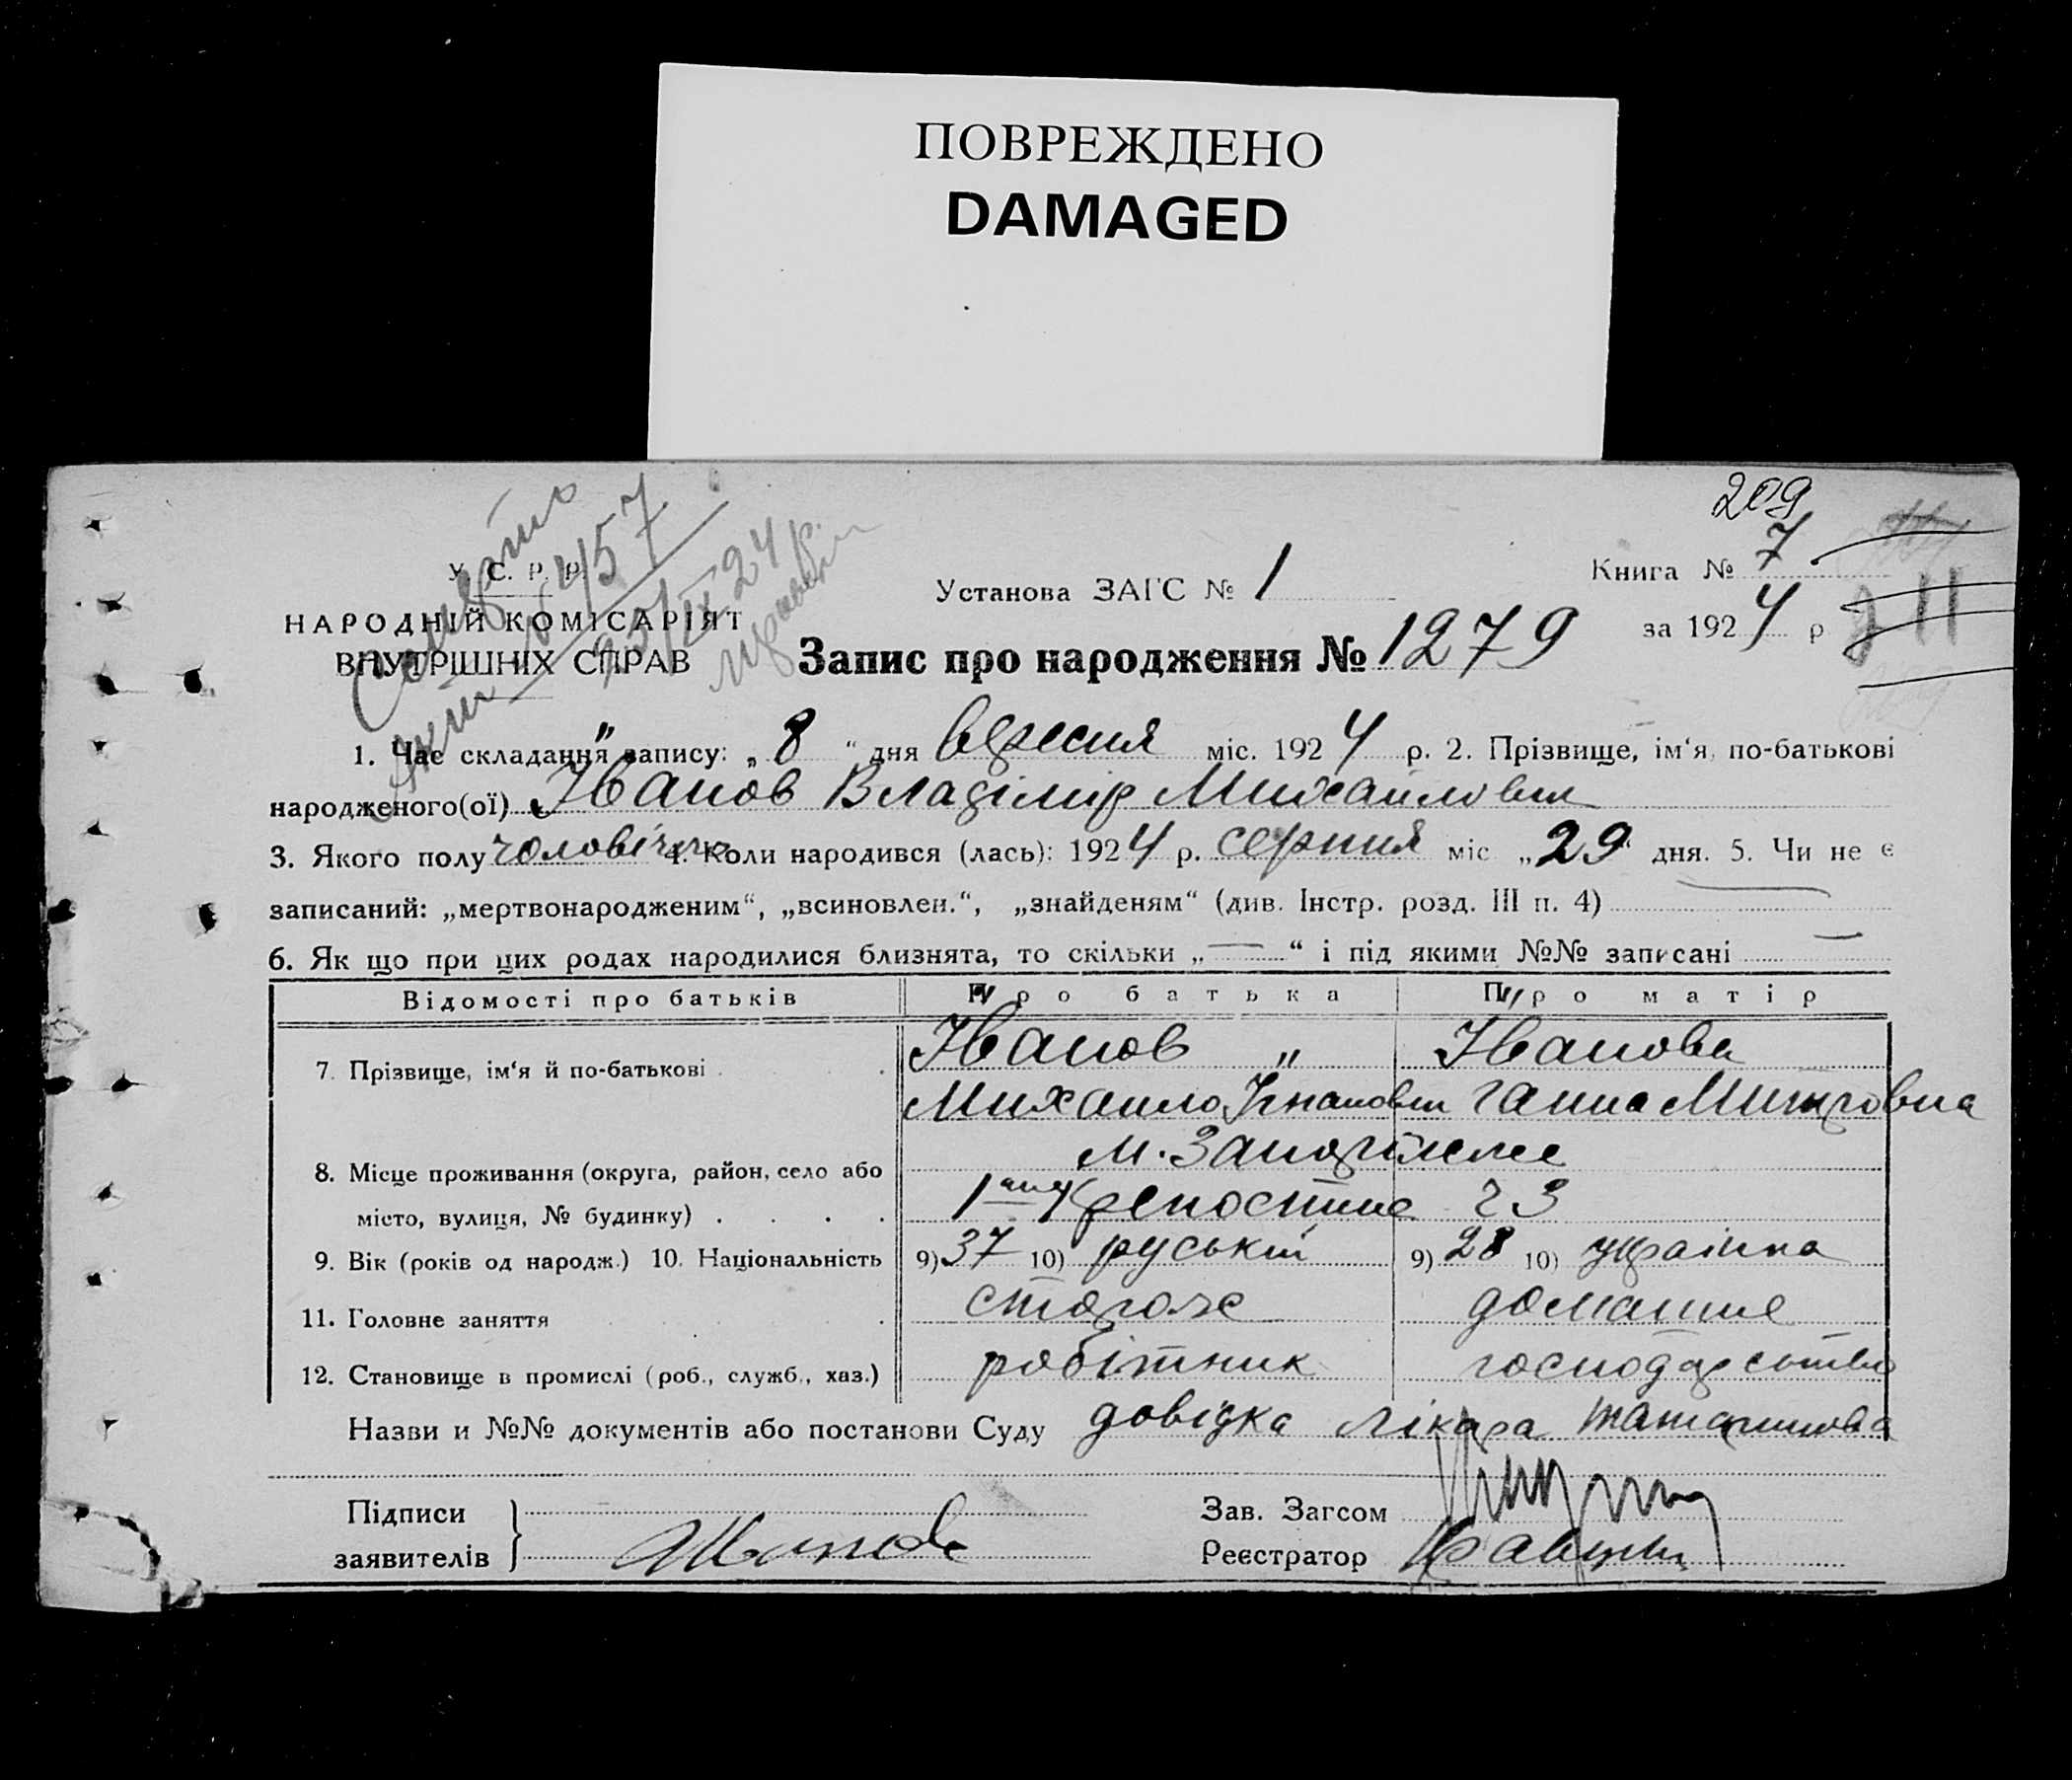 ПОВРЕЖДЕНО
DAMAGED
209
У. С. Р. Р.
НАРОДНІЙ КОМІСАРІЯТ
ВНУТРІШНІХ СПРАВ
№ 457
Установа ЗАГС № 1
Книга № 7
за 1924 р
211
Запис про народження № 1279
1. Час складання запису: „ 8 “ дня вересня міс. 1924 р. 2. Прізвище, ім‘я, по-батькові
народженого(ої) Іванов Владімір Михайлович
3. Якого полу чоловічого 4. Коли народився (лась): 1924 р. серпня міс „ 29 “ дня. 5. Чи не є
записаний: „мертвонародженим“, „всиновлен.“, „знайденям“ (див. Інстр. розд. III п. 4) —
6. Як що при цих родах народилися близнята, то скільки „ — “ і під якими №№ записані —
Відомості про батьків Про батька Про матір
7. Прізвище, ім‘я й по-батькові Іванов „ Іванова
Михайло Ганна
8. Місце проживання (округа, район, село або м. Запоріжжє
місто, вулиця, № будинку) 1 ая Крепостная 23
9. Вік (років од народж.) 10. Національність 9) 37 10) руський 9) 28 10) украінка
11. Головне заняття сторож домашнє
12. Становище в промислі (роб., служб., хаз.) робітник господарство
Назви и №№ документів або постанови Суду довідка лікаря Татаринова
Підписи
заявителів Иванов
Зав. Загсом
Реєстратор